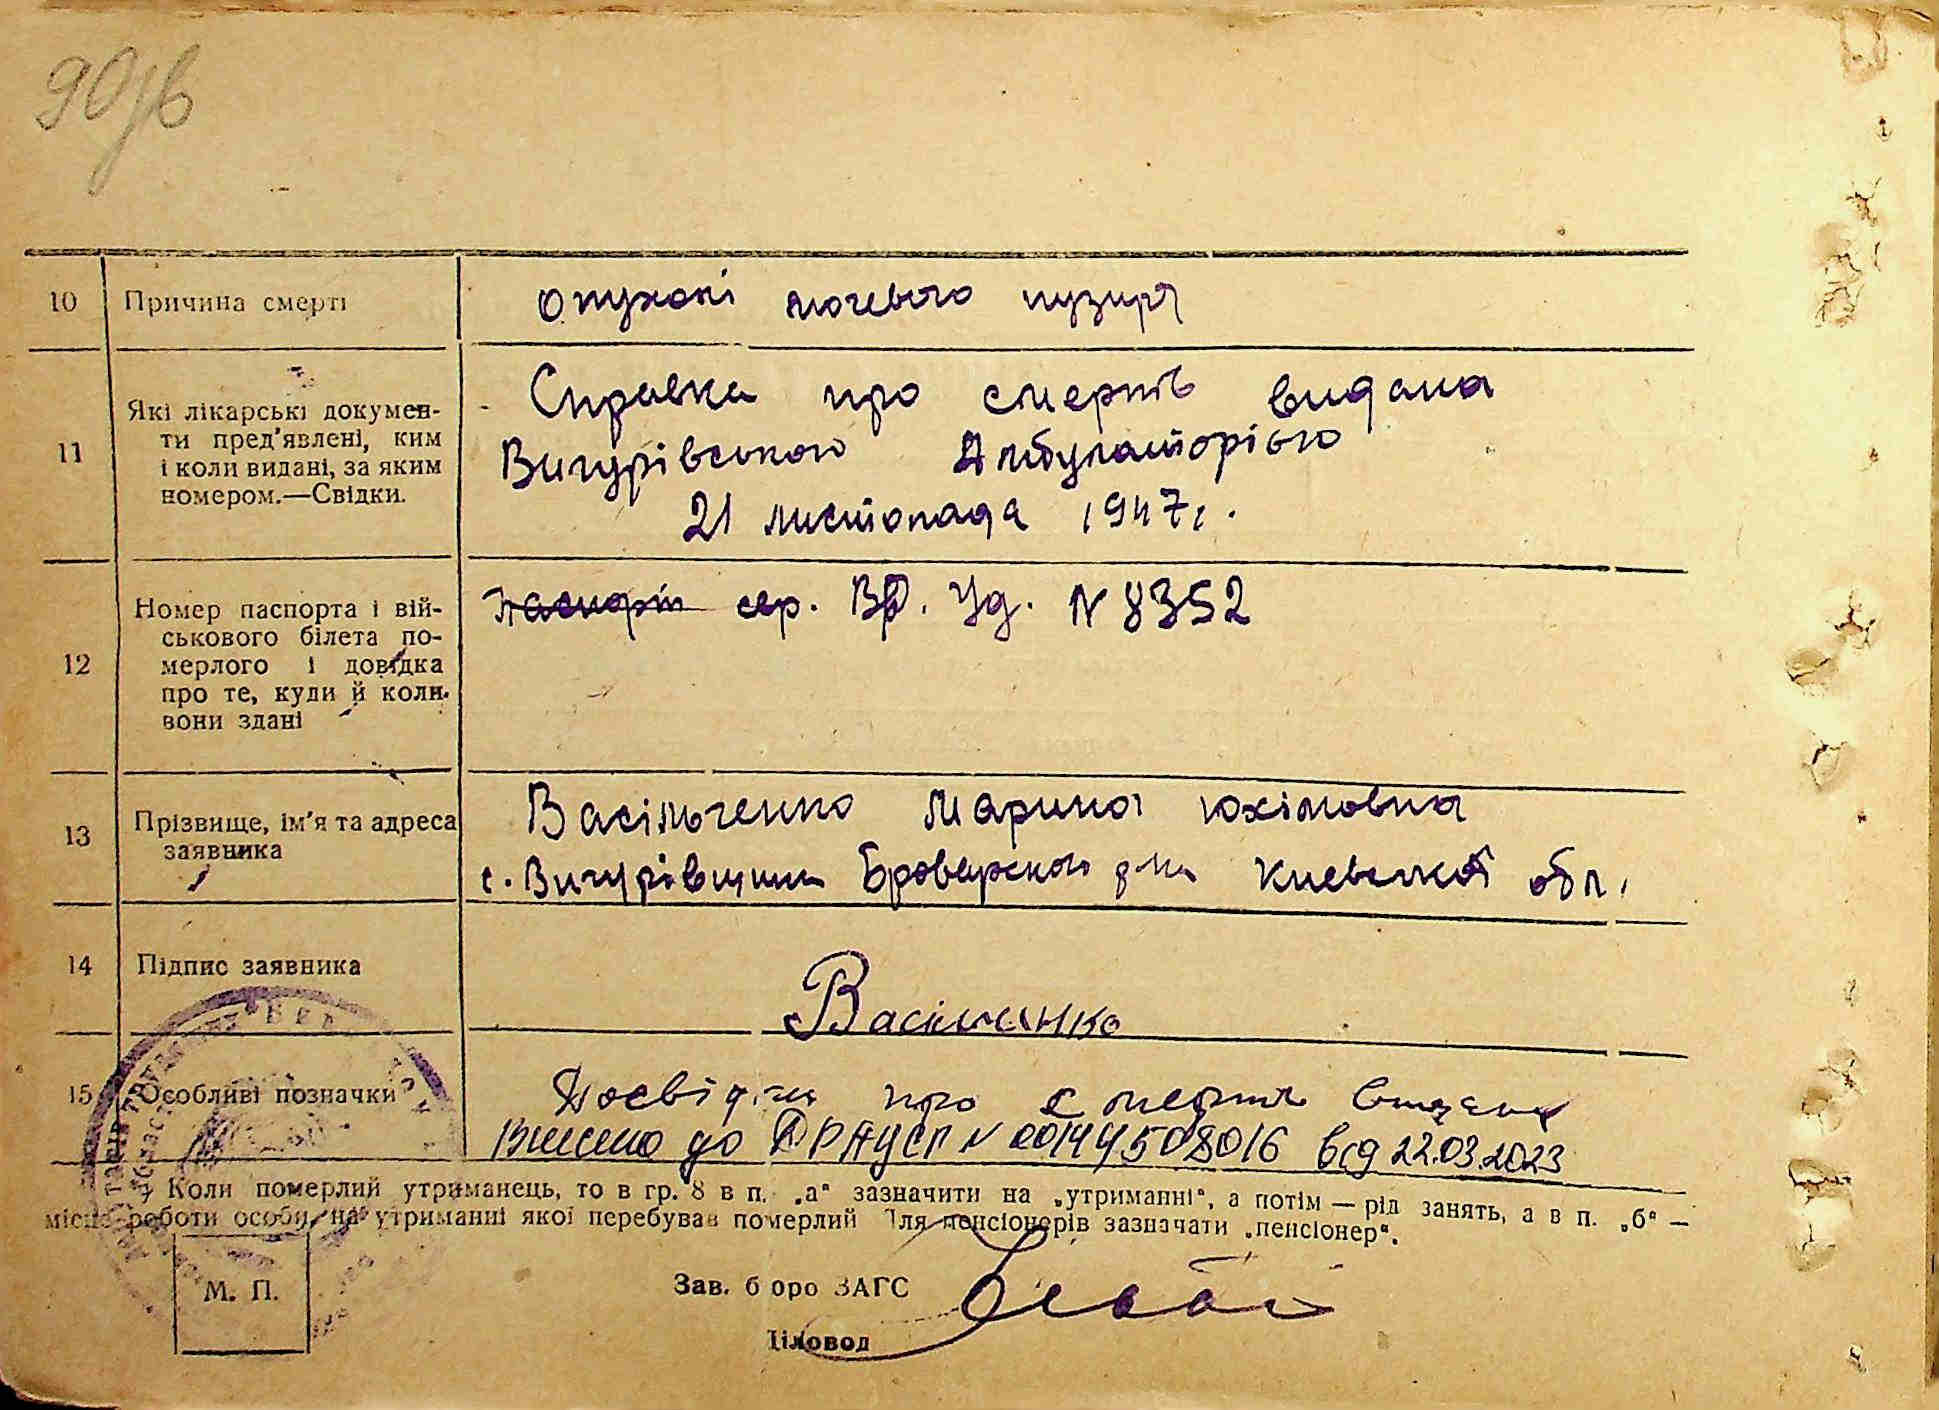 90/в
10 Причина смерті
Опухолі мочевого пузиря
11 Які лікарські докумен-
ти пред'явлені, ким
і коли видані, за яким
номером.—Свідки.
Справка про смерть видана
Вигурівською Амбулаторією
21 листопада 1947 г.
12 Номер паспорта і вій-
ськового білета по-
мерлого і довідка
про те, куди й коли
вони здані
Паспорт сер. Уд. N 8352
13 Прізвище, ім'я та адреса
заявника
Васільченко Марина Юхімовна
с. Вигурівщина Броварского р-на Киевской обл.
14 Підпис заявника
15 Особливі позначки
про смерть видано
Внесено до ДРАЦСГ N 00144508016 від 22.03.2023
Коли померлий утриманець, то в гр. 8 в п. „а“ зазначити на „утриманні“, а потім — рід занять, а в п. „б“ —
місце роботи особи, на утриманні якої перебував померлий Для пенсіонерів зазначати „пенсіонер“.
М. П.
Зав. бюро ЗАГС
Діловод